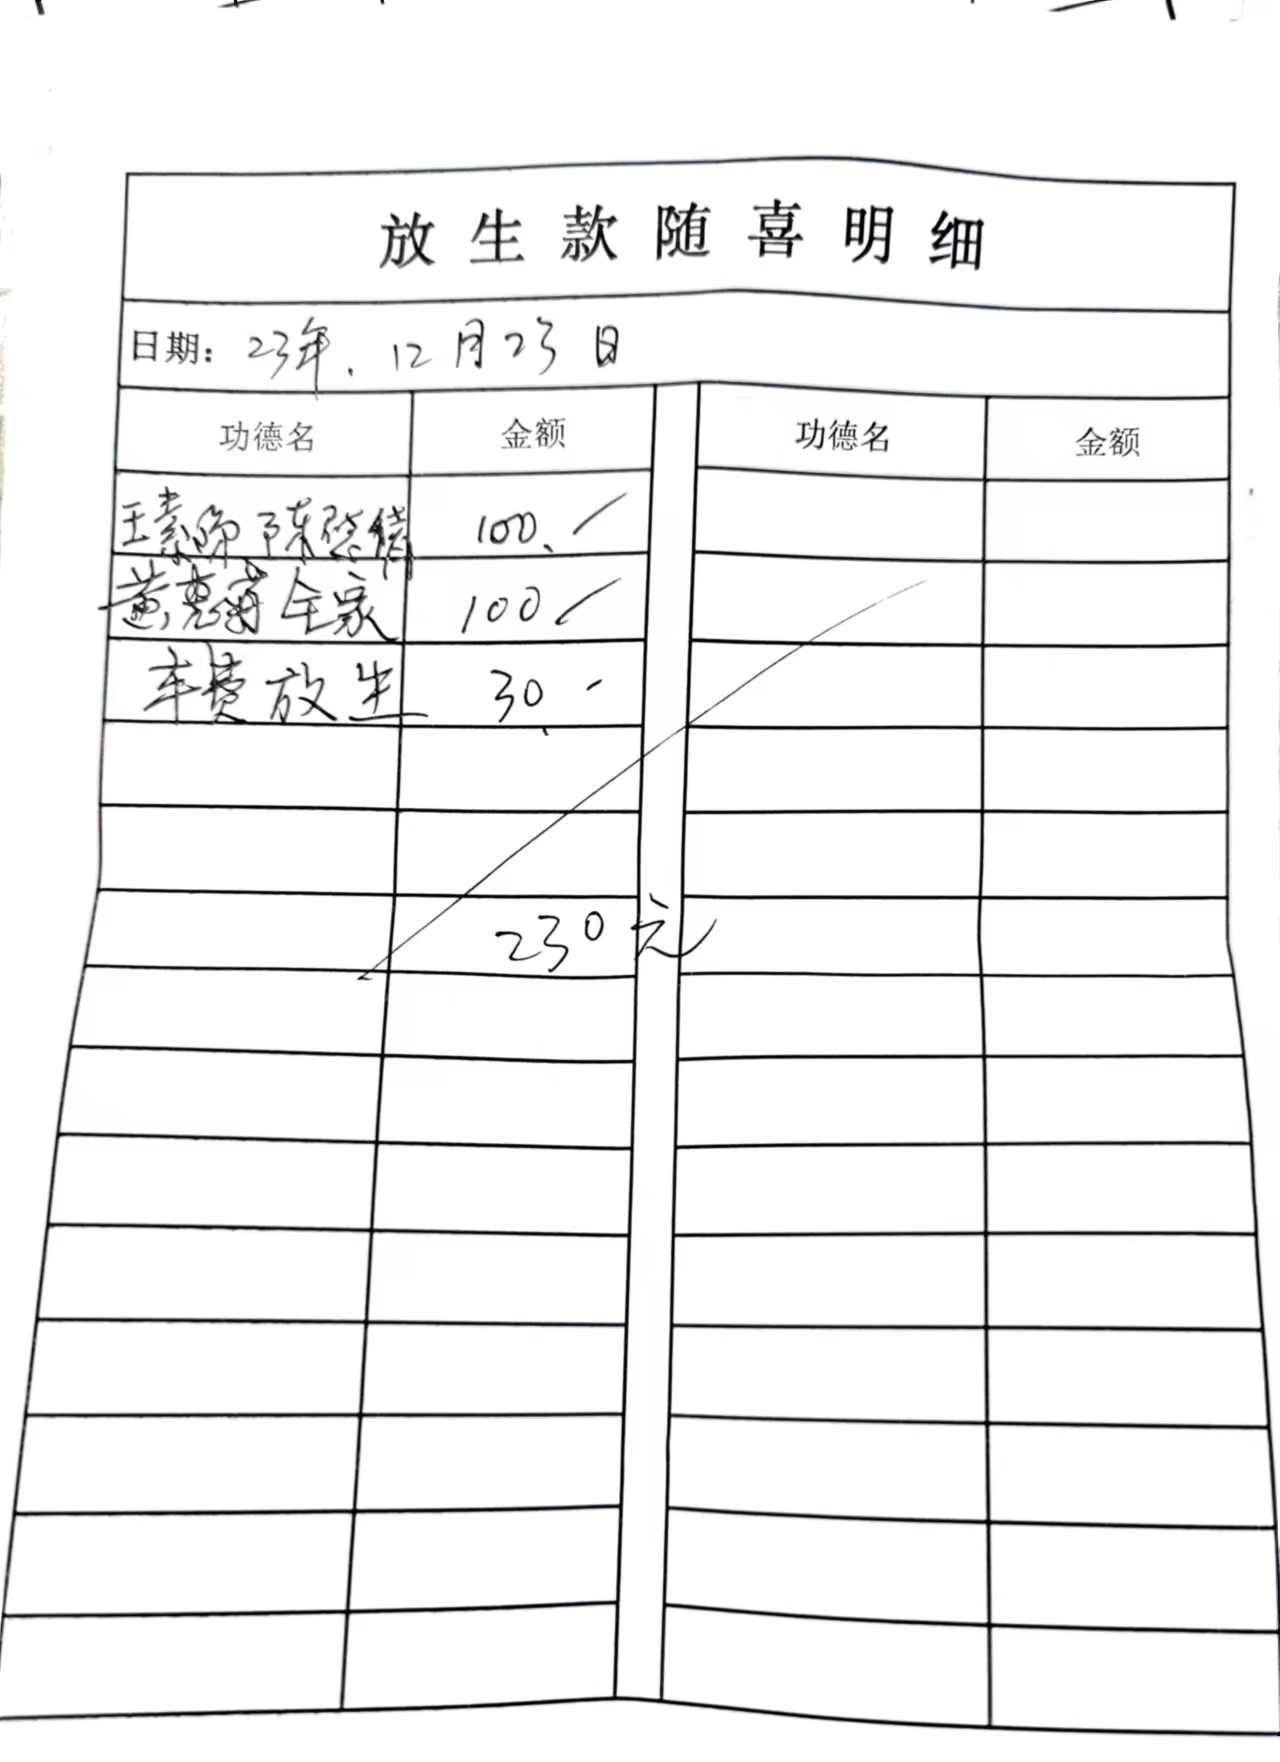 放生款随喜明细
日期：23年.12月23日
功德名 金额 功德名 金额
王素 陈 100.
黄惠 全家 100
车费放生 30.-
230元